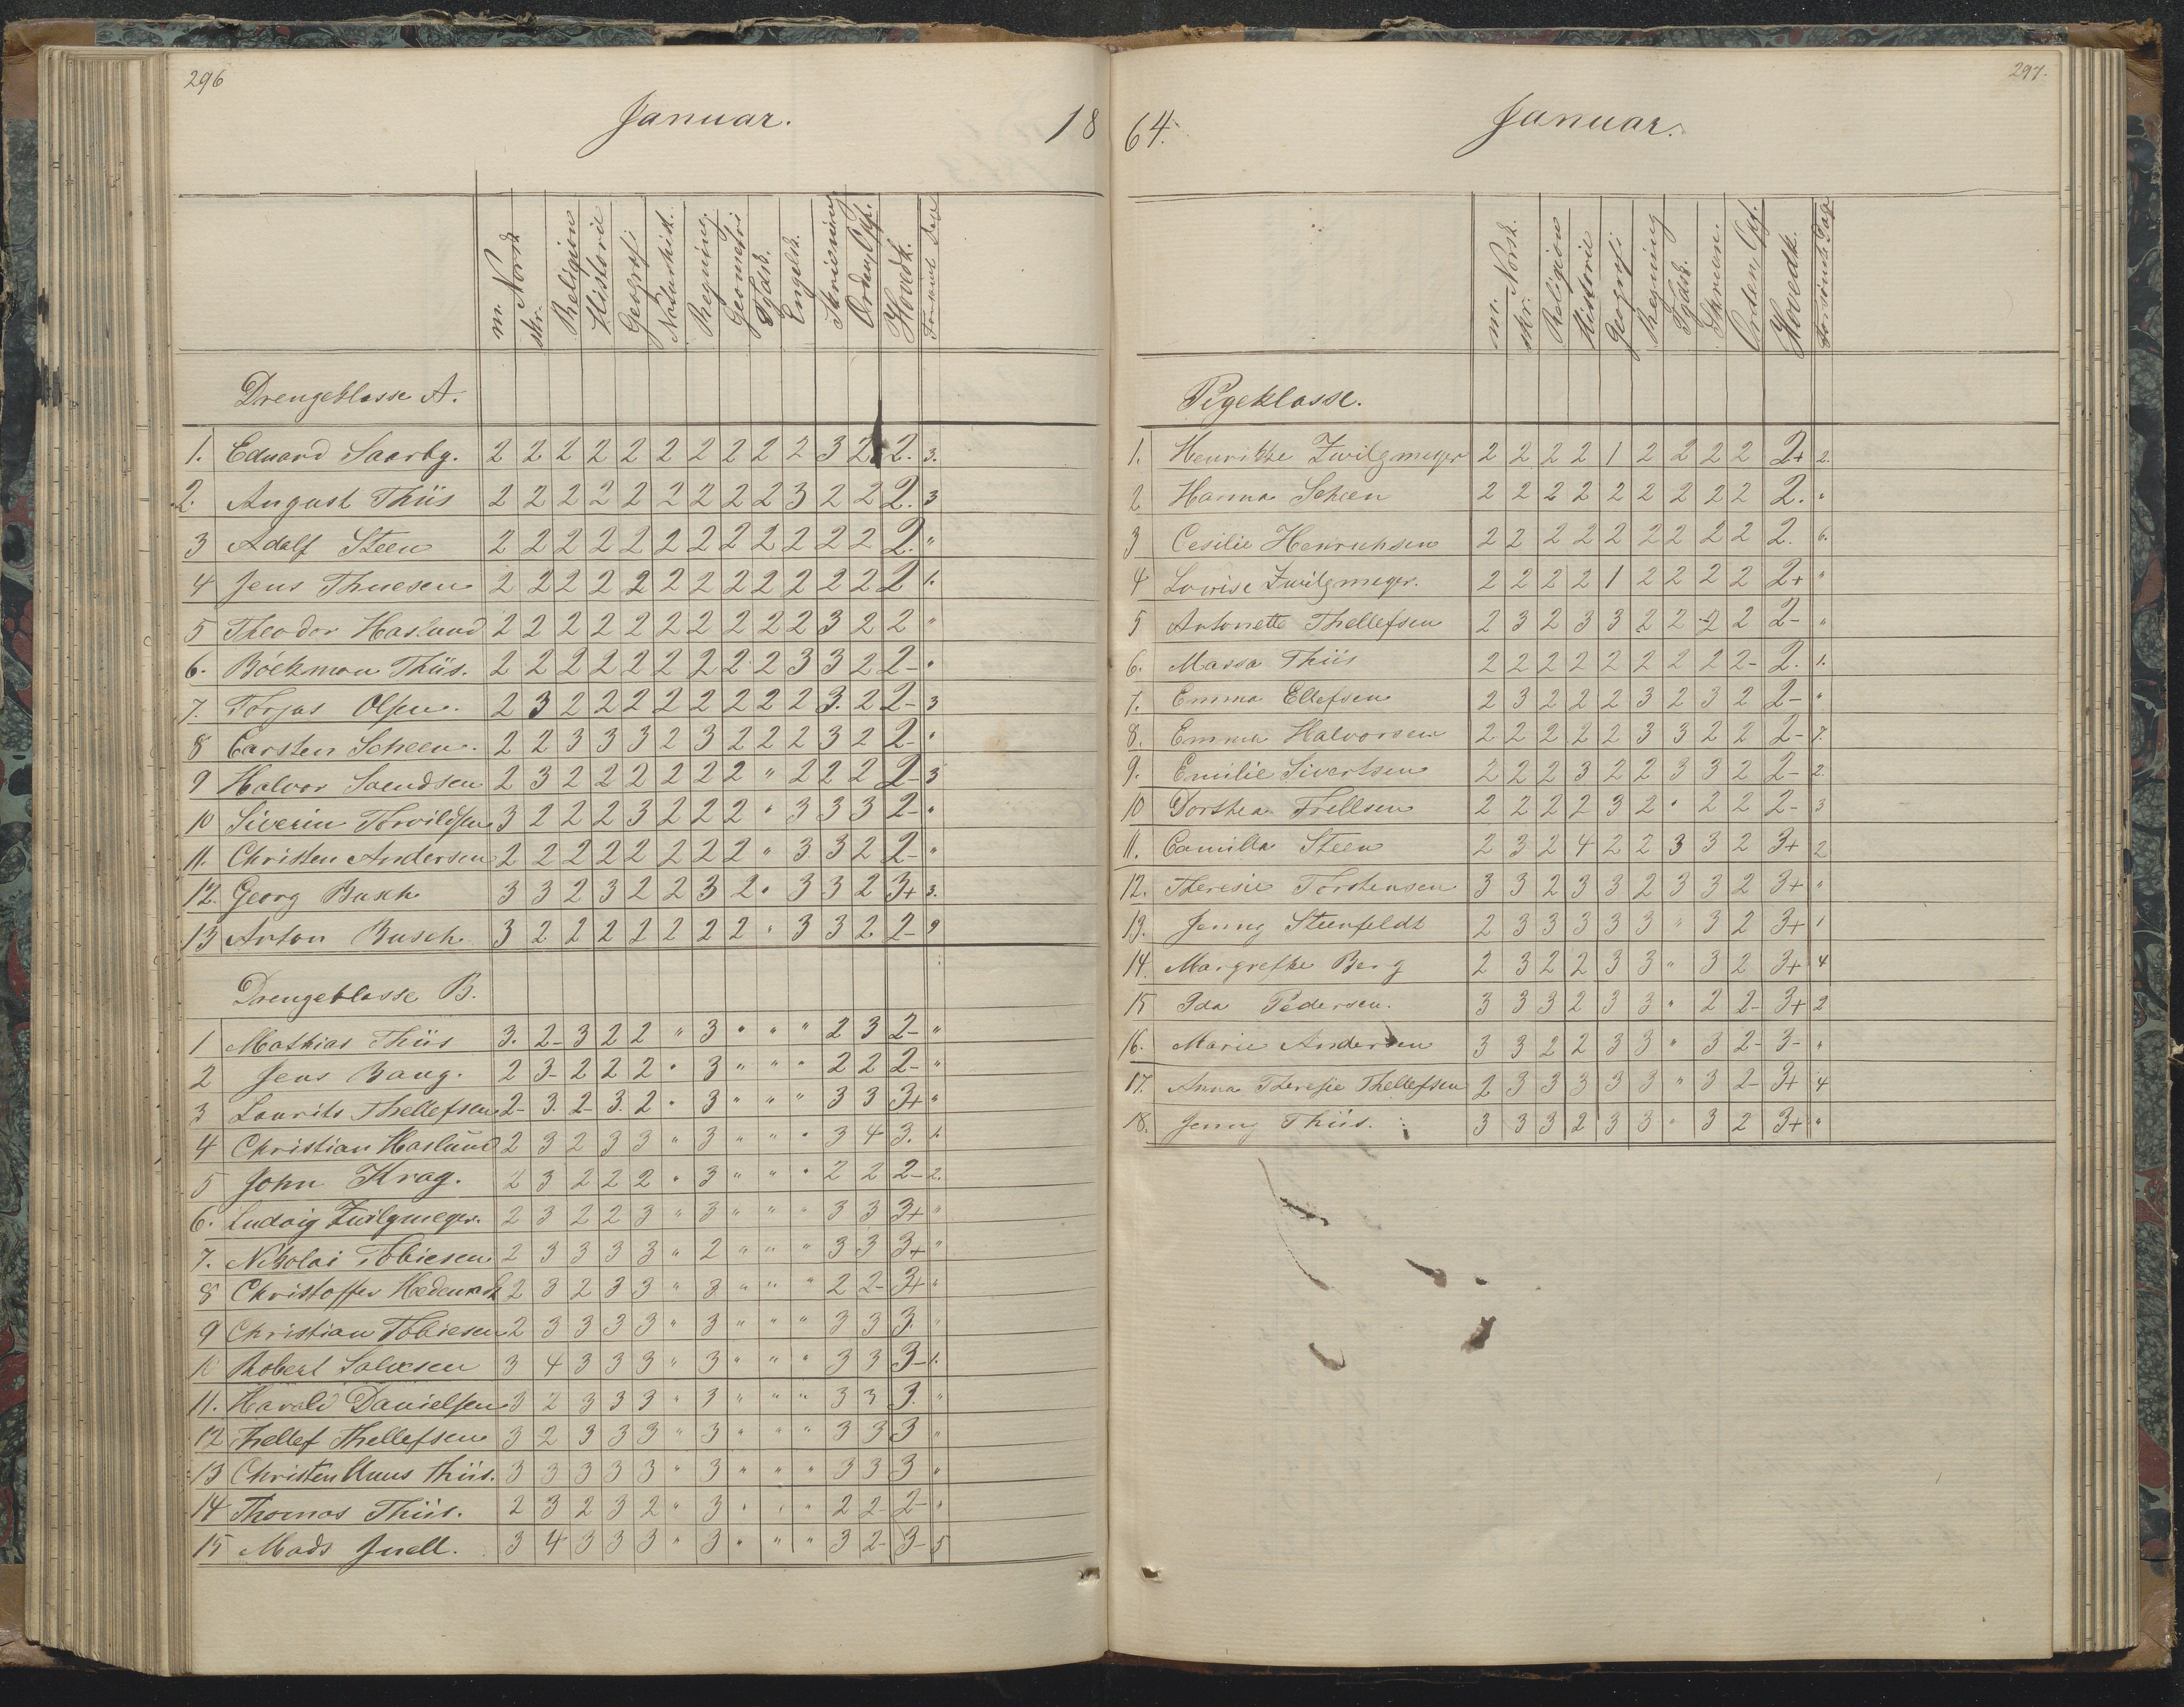 296
Januar.
18
m. Norsk
skr.
Religion
Historie
Geografi
Naturhist.
Regning.
Geometri
Tydsk.
Engelsk.
Skrivning
Orden, Opf.
Hovedk.
Drengeklasse A.
1. Eduard Saarby. 2 2 2 2 2 2 2 2 2 2 3 2 2. 3.
2. August Thiis 2 2 2 2 2 2 2 2 2 3 2 2 2. 3
3 Adolf Steen 2 2 2 2 2 2 2 2 2 2 2 2 2. "
4 Jens Thuesen 2 2 2 2 2 2 2 2 2 2 2 2 2 1.
5 Theodor Haslund 2 2 2 2 2 2 2 2 2 2 3 2 2 "
6. Böckman Thiis. 2 2 2 2 2 2 2 2 2 3 3 2 2- "
7. Torjus Olsen. 2 3 2 2 2 2 2 2 2 2 3. 2 2- 3
8 Carsten Scheen. 2 2 3 3 3 2 3 2 2 2 3 2 2- "
9 Halvor Svendsen 2 3 2 2 2 2 2 2 " 2 2 2 2- 3
10 Siverin Torvildsen 3 2 2 2 3 2 2 2 " 3 3 3 2- "
11. Christen Andersen 2 2 2 2 2 2 2 2 " 3 3 2 2- "
12. Georg Busch 3 3 2 3 2 2 3 2 " 3 3 2 3+ 3.
13 Anton Busch 3 2 2 2 2 2 2 2 " 3 3 2 2- 9
Drengeklasse B.
1 Mathias Thiis 3. 2- 3 2 2 " 3 " " " 2 3 2- "
2 Jens Bang. 2 3- 2 2 2 " 3 " " " 2 2 2- "
3 Laurits Thellefsen 2- 3. 2- 3. 2 " 3 " " " 3 3 3+ "
4 Christian Haslund 2 3 2 3 3 " 3 " " " 3 4 3. 1.
5 John Krag. 2 3 2 2 2 " 3 " " " 2 2 2- 2.
6. Ludvig Zwilgmeyer. 2 3 2 2 3 " 3 " " " 3 3 3+ "
7. Nikolai Tobiesen 2 3 3 3 3 " 2 " " " 3 3 3+ "
8 Christoffer 2 3 2 3 3 " 3 " " " 2 2- 3+ "
9 Christian Tobiesen 2 3 3 3 3 " 3 " " " 3 3 3. "
10 Robert Salvesen 3 4 3 3 3 " 3 " " " 3 3 3- 1.
11. Harald Danielsen 3 2 3 3 3 " 3 " " " 3 3 3. "
12 Thellef Thellefsen 3 2 3 3 3 " 3 " " " 3 3 3 "
13 Christen Uuus Thiis. 3 3 3 3 3 " 3 " " " 3 3 3 "
14 Thomas Thiis. 2 3 2 3 2 " 3 " " " 2 2- 2- "
15 Mads Juell. 3 4 3 3 3 " 3 " " " 3 2- 3- 5
297.
64.
Januar.
m. Norsk.
skr.
Religion
Historie
Geografi
Regning
Tydsk.
Skrivn.
Orden, Opf.
Hovedk.
Forsömte Dage
Pigeklasse.
1. Henrikke Zwilgmeyer 2 2 2 2 1 2 2 2 2 2+ 2.
2 Hanna Scheen 2 2 2 2 2 2 2 2 2 2. "
3 Cesilie Henrichsen 2 2 2 2 2 2 2 2 2 2. 6.
4 Lovise Zwilgmeyer. 2 2 2 2 1 2 2 2 2 2+ "
5 Antonette Thellefsen 2 3 2 3 3 2 2 2 2 2- "
6. Massa Thiis 2 2 2 2 2 2 2 2 2- 2. 1.
7. Emma Ellefsen 2 3 2 2 2 3 2 3 2 2- "
8. Emma Halvorsen 2 2 2 2 2 3 3 2 2 2- 7.
9. Emilie Sivertsen 2 2 2 3 2 2 3 3 2 2- 2.
10 Dorthea Frellsen 2 2 2 2 3 2 " 2 2 2- 3
11. Camilla Steen 2 3 2 4 2 2 3 3 2 3+ 2
12. Theresie Torstensen 3 3 2 3 3 2 3 3 2 3+ "
13. Jenny Steenfeldt 2 3 3 3 3 3 " 3 2 3+ 1
14. Margrethe Berg 2 3 2 2 3 3 " 3 2 3+ 4
15 Ida Pedersen. 3 3 3 2 3 3 " 2 2- 3+ 2
16. Marie Andersen 3 3 2 2 3 3 " 3 2- 3- "
17. Anna Theresie Thellefsen 2 3 3 3 3 3 " 3 2- 3+ 4
18. Jenny Thiis. 3 3 3 2 3 3 " 3 2 3+ "